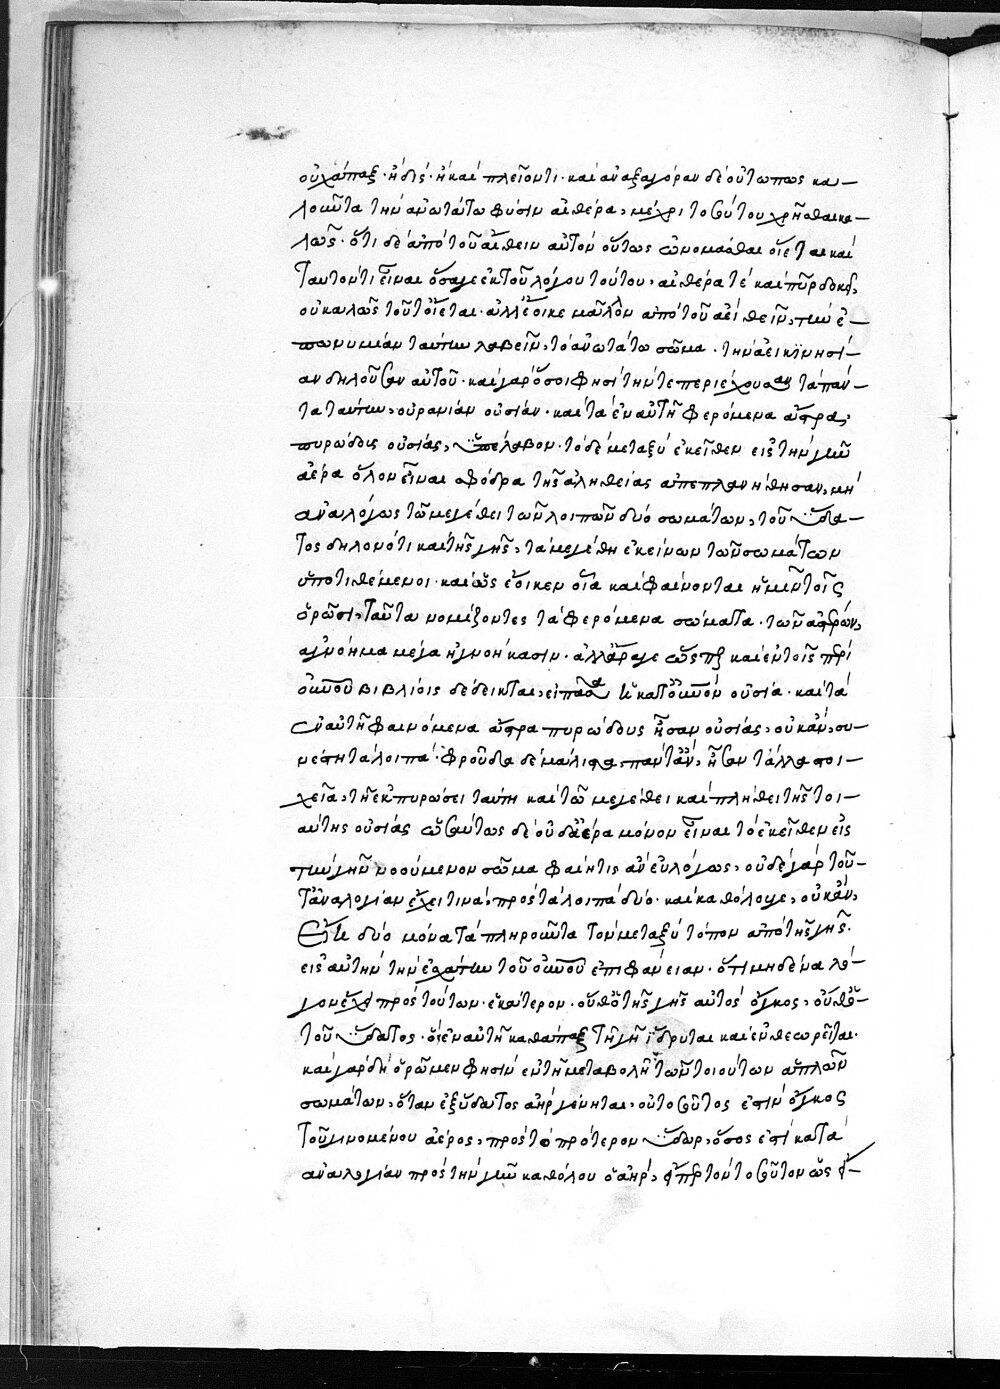 οὐχ ἅπαξ· ἢ δίς· ἢ καὶ πλεῖόν τι· καὶ ἀναξαγόραν δὲ οὕτω πως κα-
λοῦντα τὴν ἀνωτάτω φύσιν αἰθέρα, μέχρι τοσούτου χρῆσθαι κα-
λῶς· ὅτι δὲ ἀπὸ τοῦ αἴθειν αὐτὸν οὕτως ὠνομάσθαι οἴεται καὶ
ταυτόν τι εἶναι ὅσα γε ἐκ τοῦ λόγου τούτου, αἰθέρα τὲ καὶ πῦρ δοκεῖ,
οὐ καλῶς τοῦτ' οἴεται· ἀλλ' ἔοικε μᾶλλον ἀπὸ τοῦ ἀεὶ θεῖν, τὴν ἐ-
πωνυμίαν ταύτην λαβεῖν, τὸ ἀνωτάτω σῶμα· τὴν ἀεικινησί-
αν δηλοῦσαν αὐτοῦ· καὶ γὰρ ὅσοι φησὶ τήν τε περιέχουσαν τὰ πάν-
τα ταύτην, οὐρανίαν οὐσίαν· καὶ τὰ ἐν αὐτῇ φερόμενα ἄστρα,
πυρώδεις οὐσίας, ὑπέλαβον· τὸ δὲ μεταξὺ ἐκεῖθεν εἰς τὴν γῆν
ἀέρα ὅλον εἶναι σφόδρα τῆς ἀληθείας ἀπεπλανήθησαν, μὴ
ἀναλόγως τῷ μεγέθει τῶν λοιπῶν δύο σωμάτων, τοῦ ὕδα-
τος δηλονότι καὶ τῆς γῆς, τὰ μεγέθη ἐκείνων τῶν σωμάτων
ὑποτιθέμενοι· καὶ ὡς ἔοικεν οἷα καὶ φαίνονται ἡμῖν τοῖς
ὁρῶσι, ταῦτα νομίζοντες τὰ φερόμενα σώματα· τῶν ἄστρων,
ἀγνόημα μέγα ἠγνοήκασιν· ἀλλ' ἄρα γε ὥσπερ καὶ ἐν τοῖς περὶ
οὐρανοῦ βιβλίοις δέδεικται, εἰ πᾶσα ἡ κατ' οὐρανὸν οὐσία· καὶ τὰ
ἐν αὐτῇ φαινόμενα ἄστρα πυρώδους ἦσαν οὐσίας, οὐκ ἂν, συ-
νέστη τὰ λοιπά· φροῦδα δὲ μάλιστα παντ' ἂν, ἦσαν τἄλλα στοι-
χεῖα, τῇ ἐκπυρώσει ταύτῃ καὶ τῷ μεγέθει καὶ πλήθει τῆς τοι-
αύτης οὐσίας ὡσαύτως δὲ οὐδ' ἀέρα μόνον εἶναι τὸ ἐκεῖθεν εἰς
τὴν γῆν νοούμενον σῶμα φαίη τις ἂν εὐλόγως, οὐδὲ γὰρ τοῦ-
τ' ἀναλογίαν ἔχει τινὰ, πρὸς τὰ λοιπὰ δύο· καὶ καθόλου γε, οὐκ ἂν,
εἴη δύο μόνα τὰ πληροῦντα τὸν μεταξὺ τόπον ἀπὸ τῆς γῆς·
εἰς αὐτὴν τὴν ἐσχάτην τοῦ οὐρανοῦ ἐπιφάνειαν· ὅτι μηδένα λό-
γον ἔχει πρὸς τούτων· ἑκάτερον· οὔθ' ὁ τῆς γῆς αὐτὸς ὄγκος, οὔθ' ὁ
τοῦ ὕδατος· ὃ ἐν αὐτῇ καθάπαξ τῇ γῇ ἵδρυται καὶ ἐνθεωρεῖται·
καὶ γὰρ δὴ ὁρῶμεν φησὶν ἐν τῇ μεταβολῇ τῶν τοιούτων ἁπλῶν
σωμάτων, ὅταν ἐξ ὕδατος ἀὴρ γένηται, οὐ τοσοῦτος ἐστὶν ὄγκος
τοῦ γινομένου ἀέρος, πρὸς τὸ πρότερον ὕδωρ, ὅσος ἐστὶ κατὰ
ἀναλογίαν πρὸς τὴν γῆν καθόλου ὁ ἀὴρ, εἴπερ τὸν τοσοῦτον ὡς ἐ-